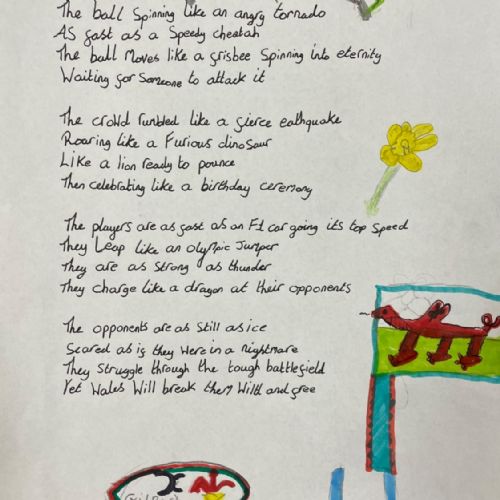 The ball Spinning like an angry tornado
As fast as a Speedy cheatah
The ball Moves like a frisbee Spinning into eternity
Waiting for Someone to attack it
The crowd rumbled like a fierce eathquake
Roaring like a Furious dinosaur
Like a lion ready to pounce
Then celebrating like a birthday ceremony
The players are as fast as an F1 car going it's top Speed
They Leap like an olympic Jumper
They are as Strong as thunder
They charge like a dragon at their opponents
The opponents are as Still as ice
Scared as if they Were in a nightmare
They Struggle through the tough battlefield
Yet Wales Will break them Wild and free